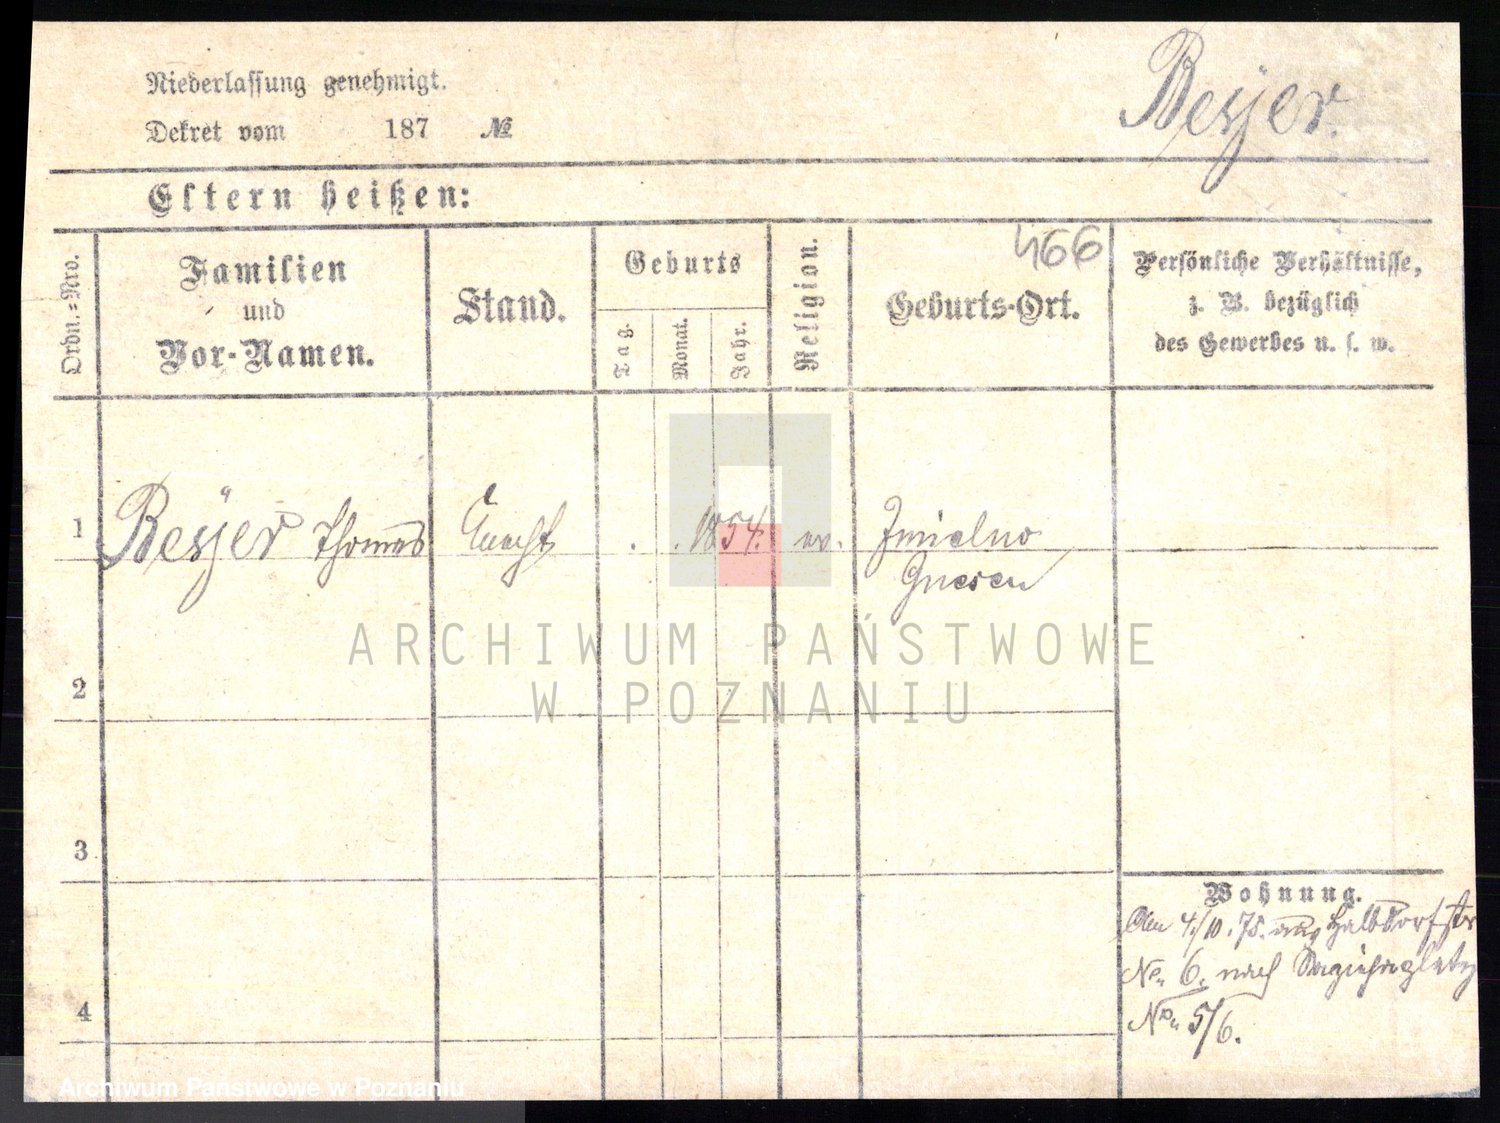 Niederlassung genehmigt.
Dekret vom 187 №
Beyer.
Eltern heißen:
466
Ordn.=Nro.
Familien
und
Vor-Namen.
Stand.
Geburts
Tag.
Monat.
Jahr.
Religion.
Geburts-Ort.
Persönliche Verhältnisse,
z. B. bezüglich
des Gewerbes u. s. w.
1 Beyer Thomas Knecht . . 1854. ev. Zmielno
Gnesen
ARCHIWUM PAŃSTWOWE
W POZNANIU
2
3
4
Wohnung.
Den 4/10. 75. aus Halbdorfstr
No. 6. nach Sapiehaplatz
No. 5/6.
Archiwum Państwowe w Poznaniu